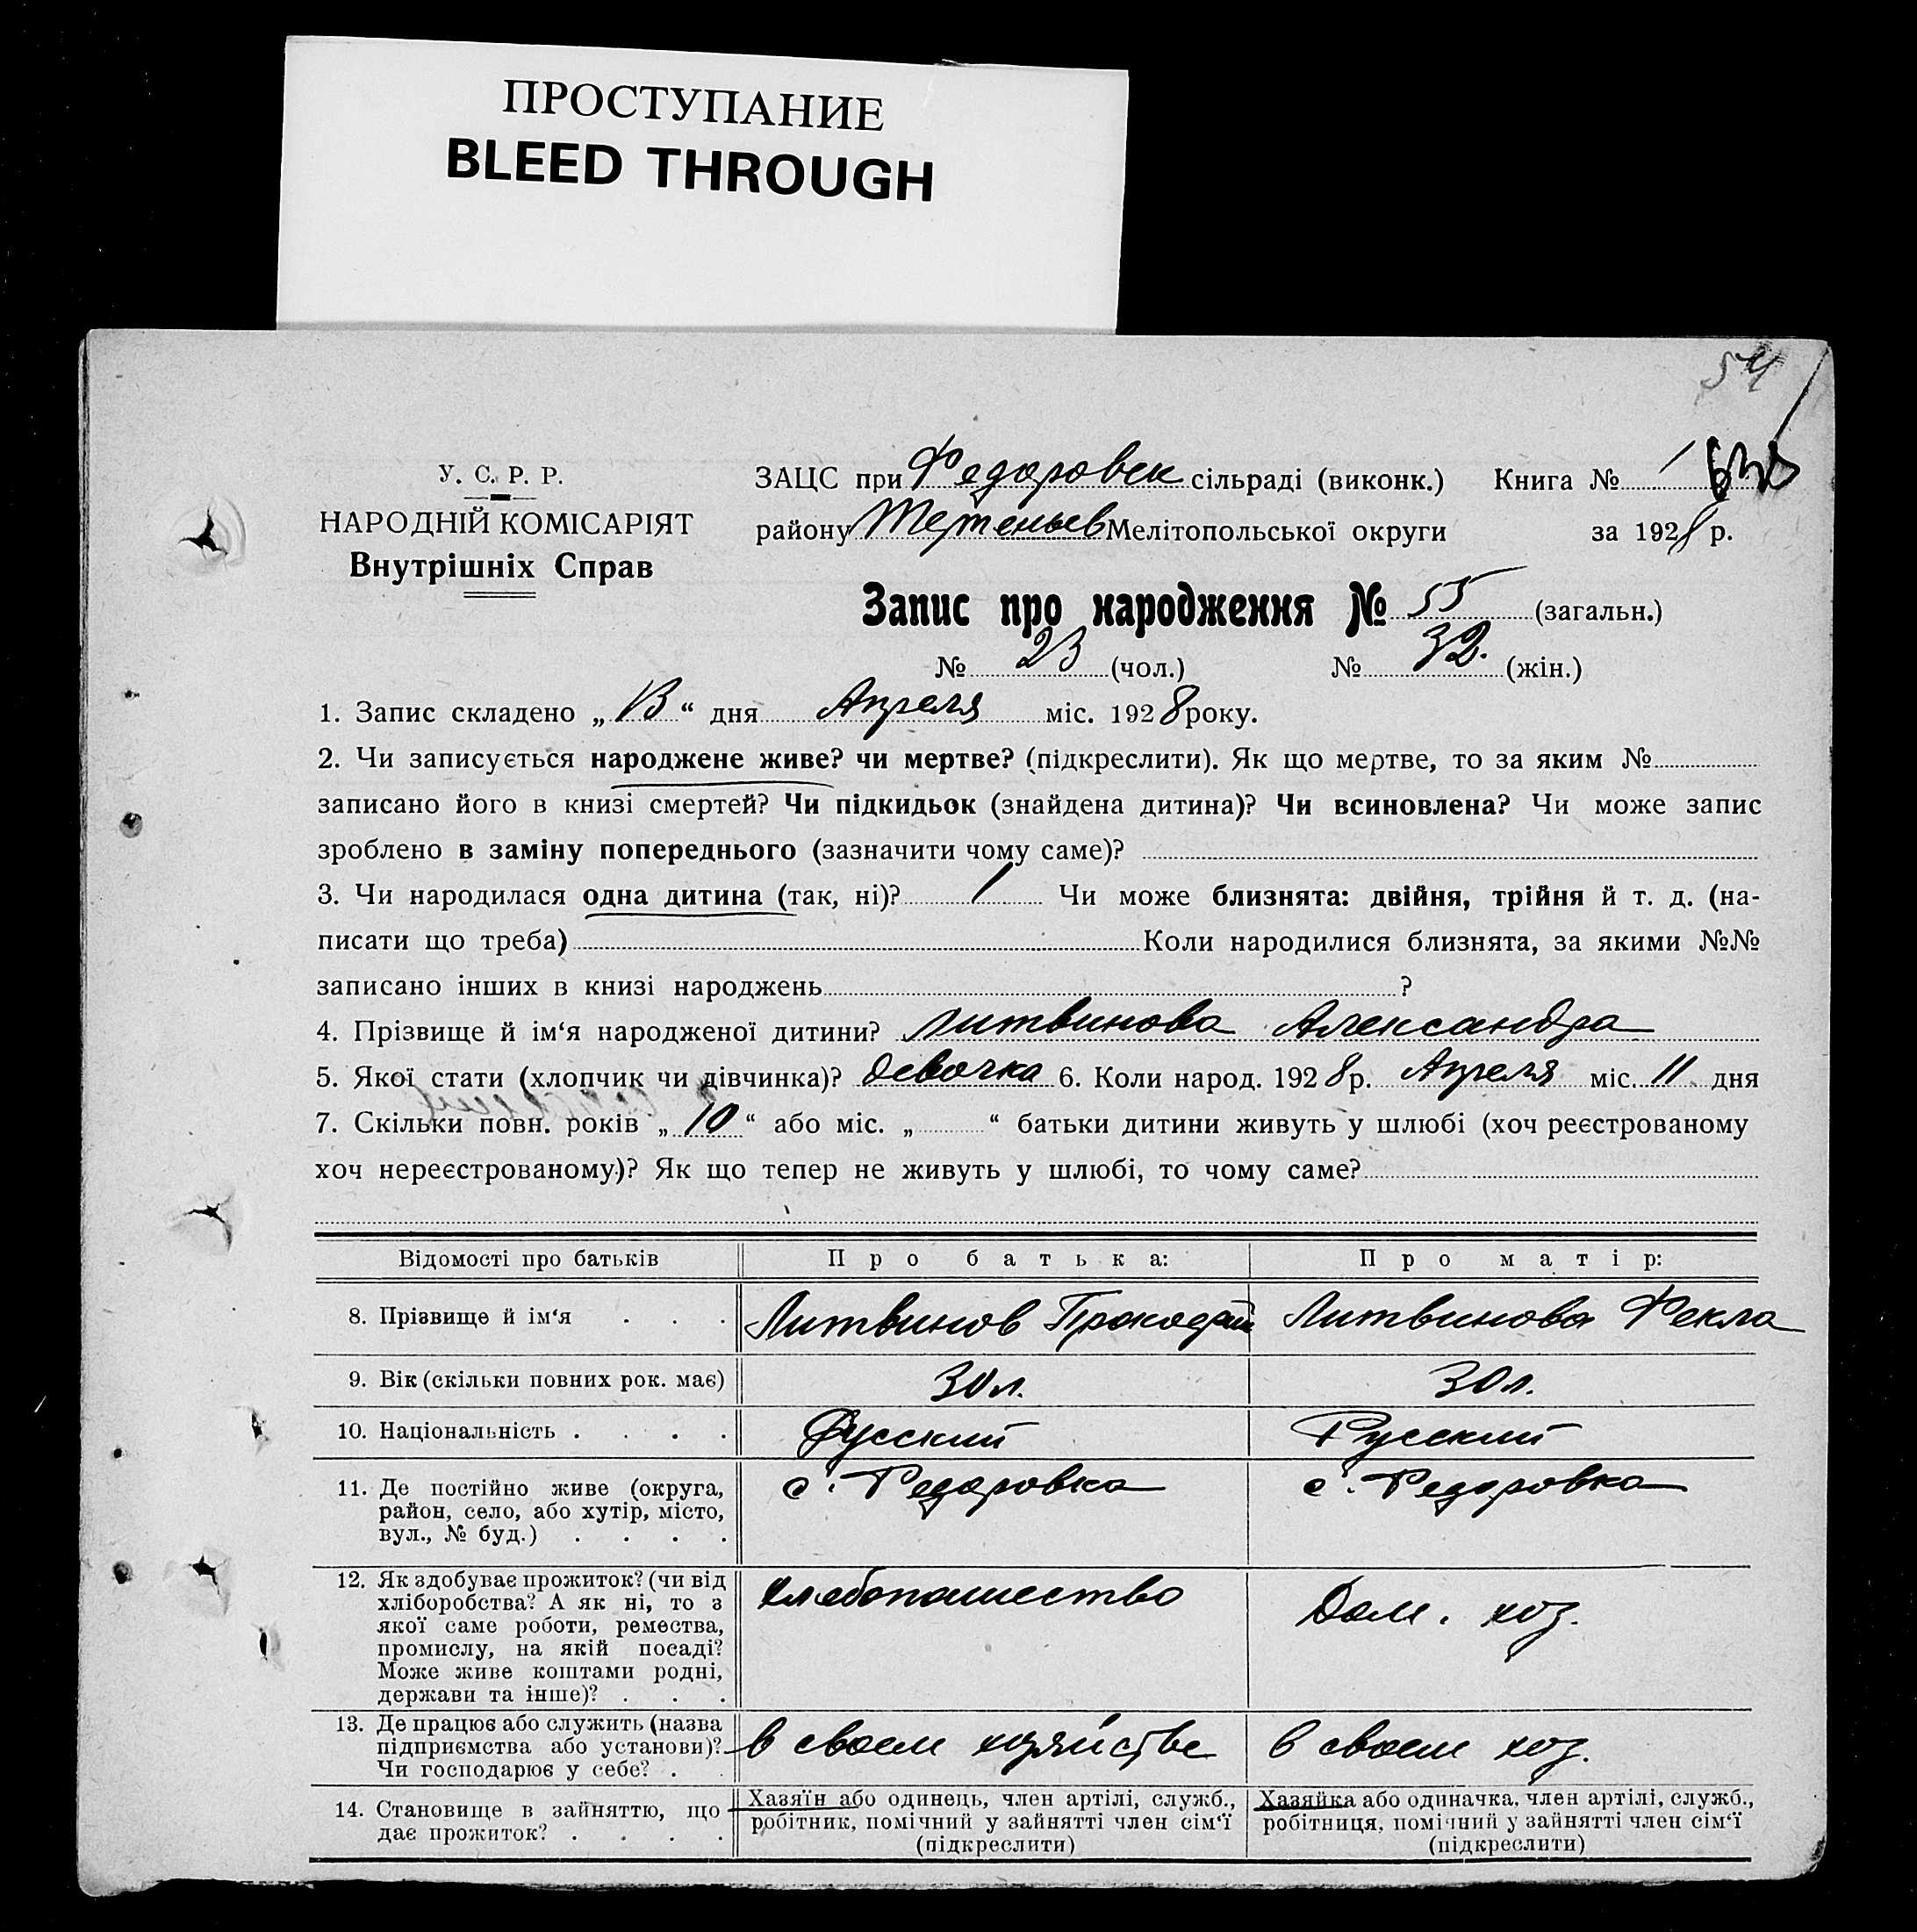 ПРОСТУПАНИЕ
BLEED THROUGH
54
У. С. Р. Р.
НАРОДНІЙ КОМІСАРІЯТ
Внутрішніх Справ
ЗАЦС при Федоровск сільраді (виконк.) Книга № 1
району Мелітопольської округи за 1928 р.
Запис про народження № 55 (загальн.)
№ 23 (чол.) № 32. (жін.)
1. Запис складено „13“ дня Апреля міс. 1928 року.
2. Чи записується народжене живе? чи мертве? (підкреслити). Як що мертве, то за яким №
записано його в книзі смертей? Чи підкидьок (знайдена дитина)? Чи всиновлена? Чи може запис
зроблено в заміну попереднього (зазначити чому саме)?
3. Чи народилася одна дитина (так, ні)? 1 Чи може близнята: двійня, трійня й т. д. (на-
писати що треба) Коли народилися близнята, за якими №№
записано інших в книзі народжень ?
4. Прізвище й ім‘я народженої дитини? Литвинова Александра
5. Якої стати (хлопчик чи дівчинка)? девочка 6. Коли народ. 1928 р. Апреля міс. 11 дня
7. Скільки повн. років „10“ або міс. „ “ батьки дитини живуть у шлюбі (хоч реєстрованому
хоч нереєстрованому)? Як що тепер не живуть у шлюбі, то чому саме?
Відомості про батьків Про батька: Про матір:
8. Прізвище й ім‘я . . . Литвинов Литвинова Фекла
9. Вік (скільки повних рок. має) 30 л. 30 л.
10. Національність . . . . Русский Русский
11. Де постійно живе (округа, район, село, або хутір, місто, вул., № буд.) . . . . с. Федоровка с. Федоровка
12. Як здобуває прожиток? (чи від хліборобства? А як ні, то з якої саме роботи, ремества, промислу, на якій посаді? Може живе коштами родні, держави та інше)? . . . хлебопашество Дом. хоз.
13. Де працює або служить (назва підприємства або установи)? Чи господарює у себе? . . в своем хозяйстве в своем хоз.
14. Становище в зайняттю, що дає прожиток? . . . . Хазяїн або одинець, член артілі, служб., робітник, помічний у зайнятті член сім‘ї (підкреслити) Хазяйка або одиначка, член артілі, служб., робітниця, помічний у зайнятті член сім‘ї (підкреслити)